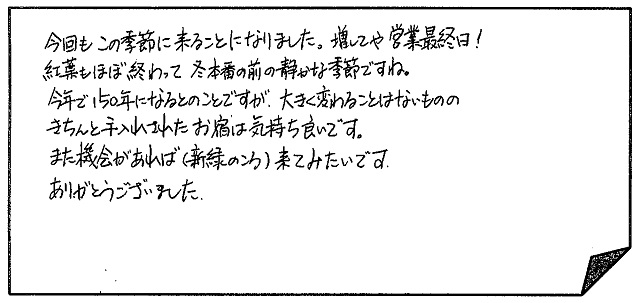 今回も この季節に来ることになりました。増してや 営業最終日!
紅葉もほぼ終わって 冬本番の前の静かな季節ですね。
今年で150年になるとのことですが、大きく変わることはないものの
きちんと手入れされた お宿は気持ち良いです。
また機会があれば(新緑のころ)来てみたいです。
ありがとうございました。